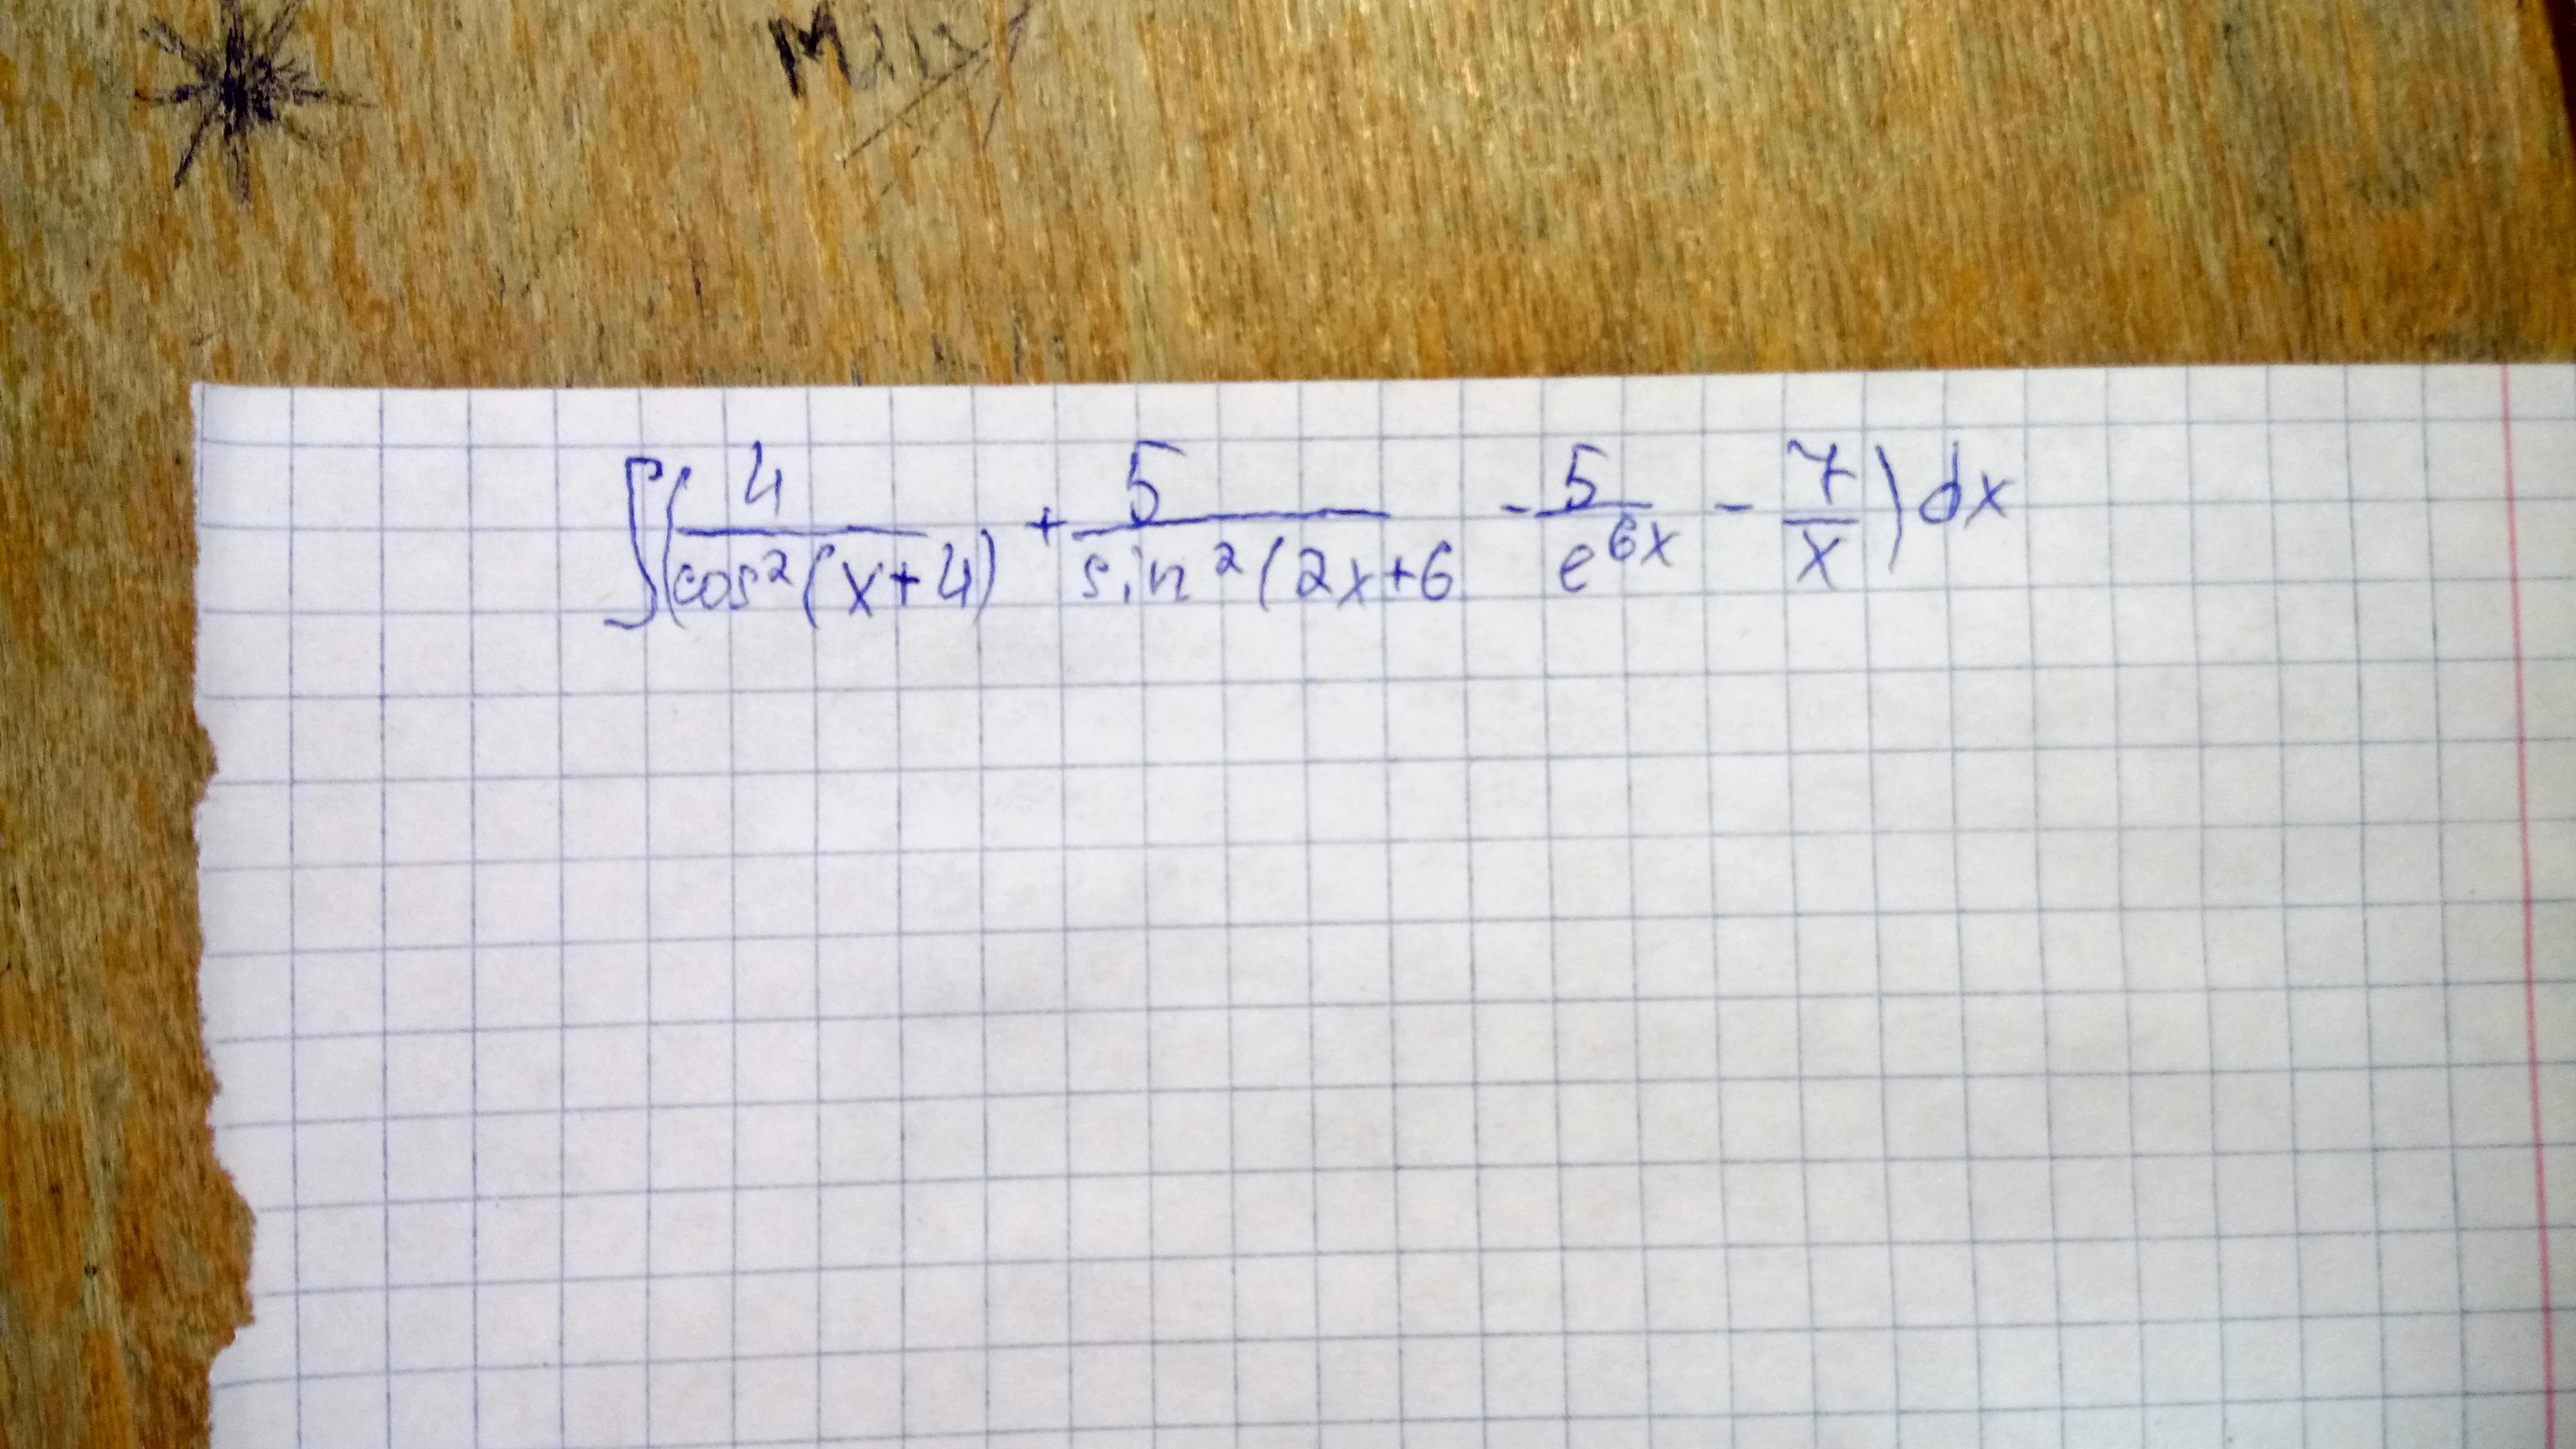 ∫(4/cos²(x+4) + 5/sin²(2x+6 - 5/e^6x - 7/x)dx